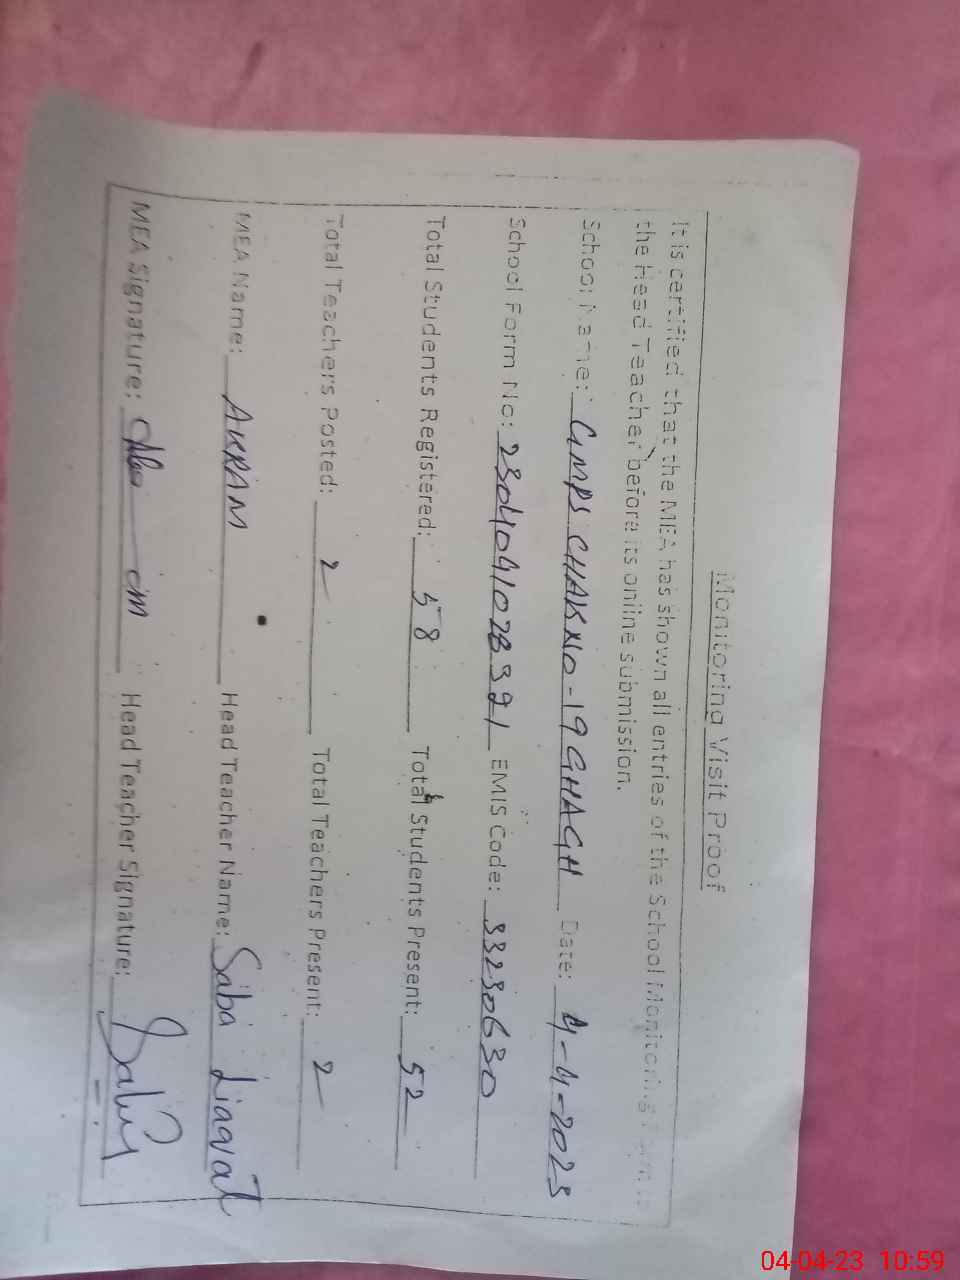 Monitoring Visit Proof
It is certified that the MEA has shown all entries of the School Monitoring Form to
the Head Teacher before its online submission.
School Name: GMPS CHAK NO-19 GHAGH Date: 4-4-2023
School Form No: EMIS Code: 33230630
Total Students Registered: 58 Total Students Present: 52
Total Teachers Posted: 2 Total Teachers Present: 2
MEA Name: AKRAM Head Teacher Name: Saba Liaqat
MEA Signature: Head Teacher Signature:
04-04-23 10:59